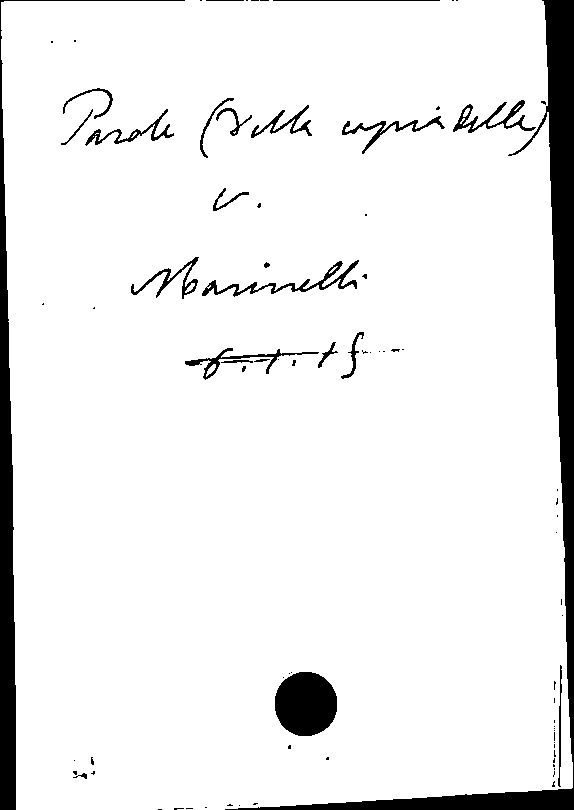 Parole (della copia delle)
v.
Marinelli
6.1.15